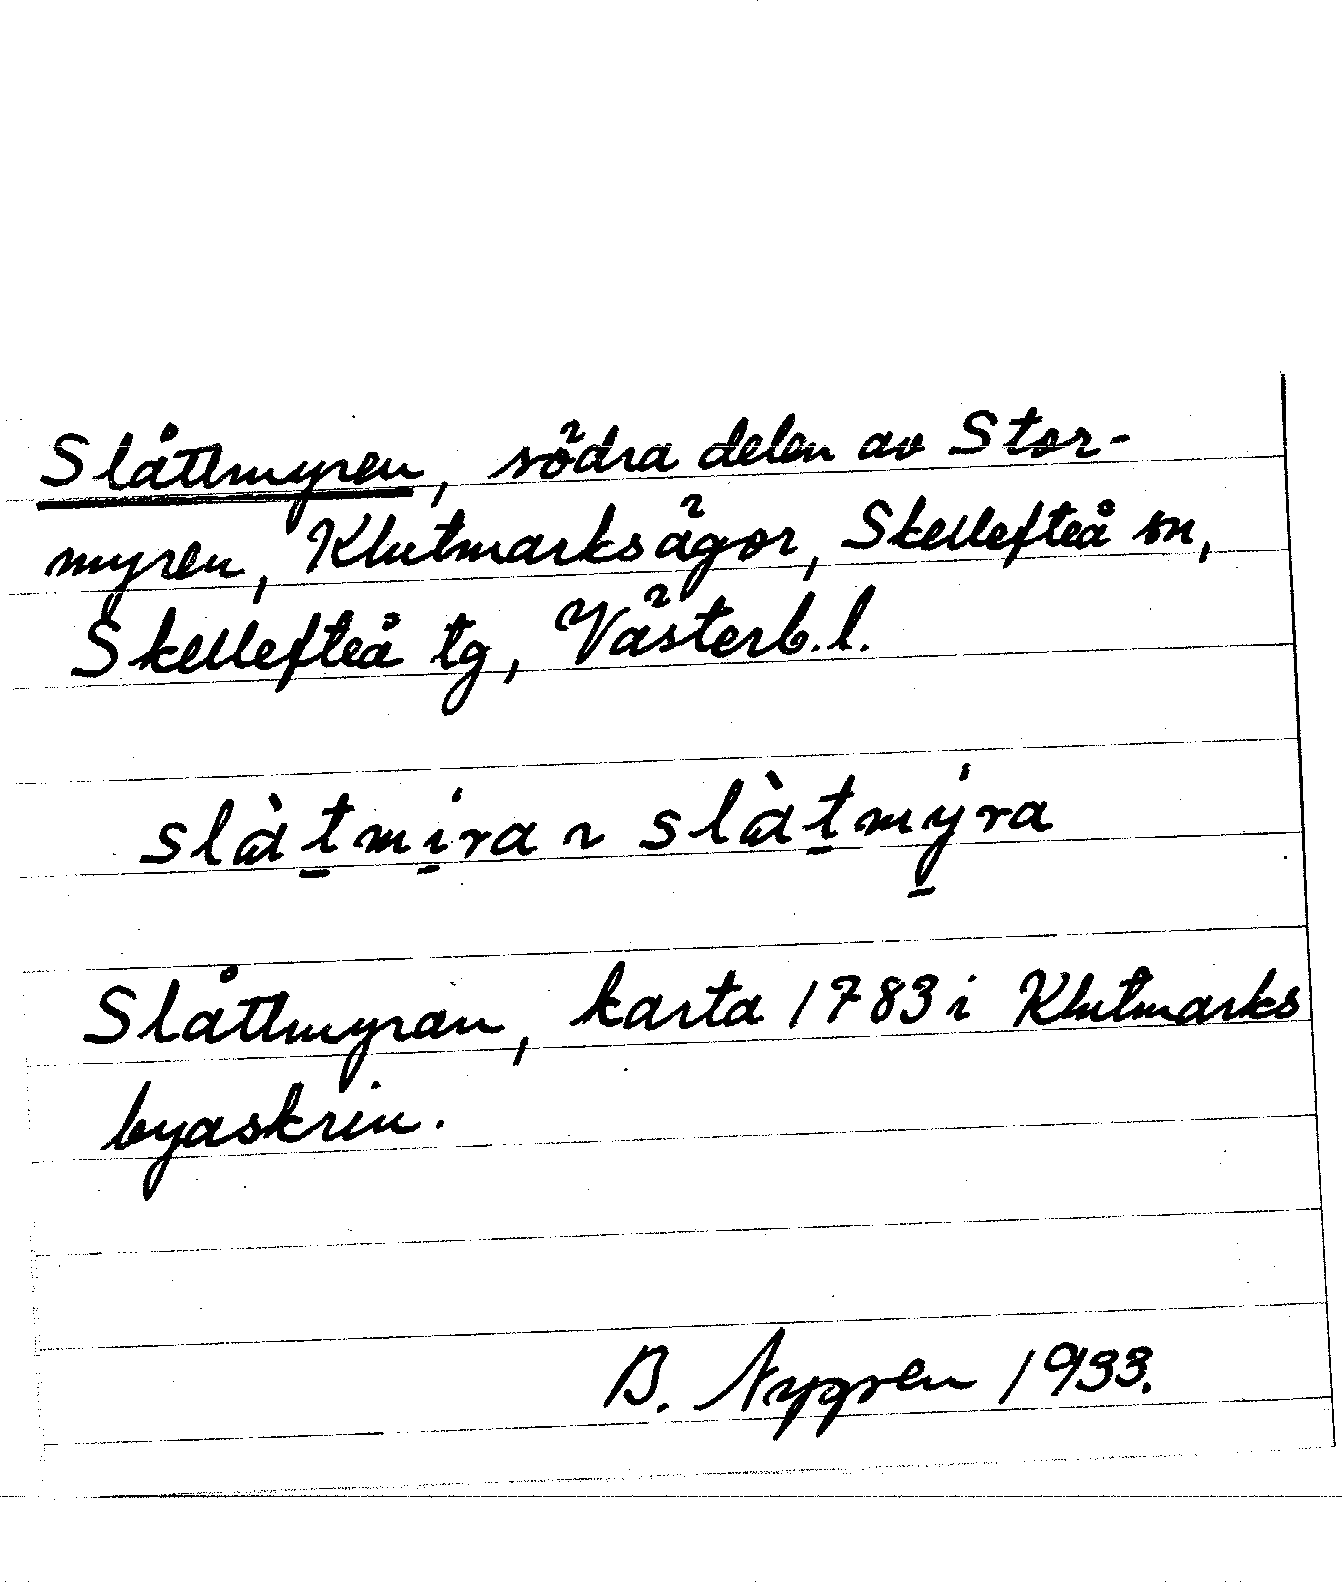 Slåttmyren, södra delen av Stor-
myren, Klutmarksägor, Skellefteå sn,
Skellefteå tg, Västerb.l.
slàt̠mi̠ra ~ slàt̠my̠ra
Slåttmyran, karta 1783 i Klutmarks
byaskrin.
B. Nygren 1933.